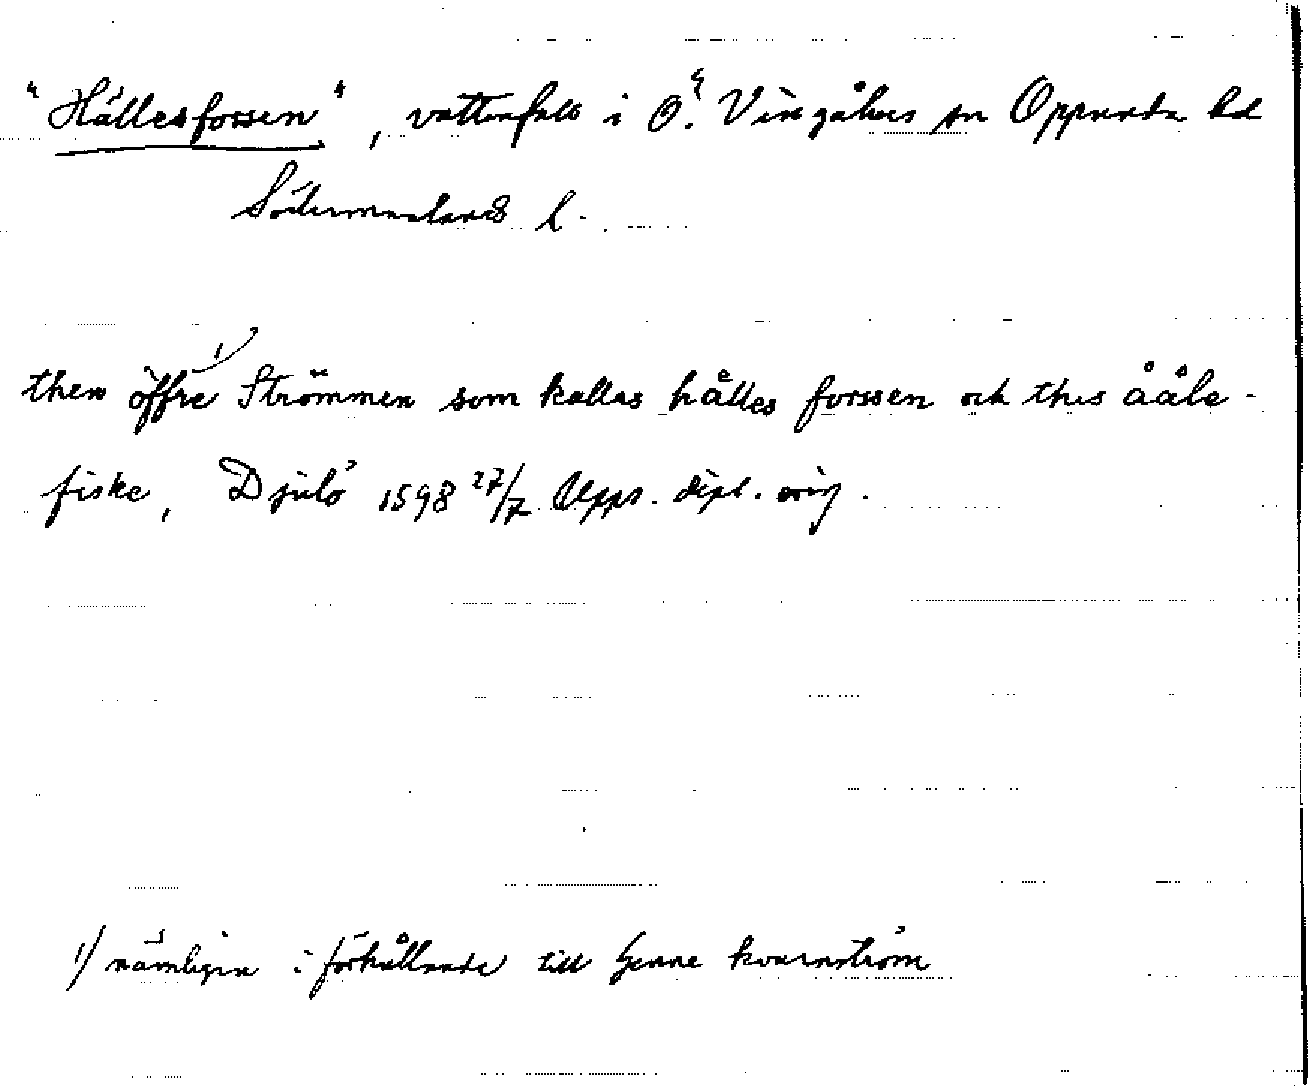 "Hällesfossen", vattenfall i Ö. Vingåkers sn Oppunda hd
Södermanlands l.
then öffre 1) Strömmen som kallas hålles forssen och thes ååle-
fiske, Djulö 1598 27/7 Upps. dipl. orig.
1/ nämligen i förhållande till kvarnström